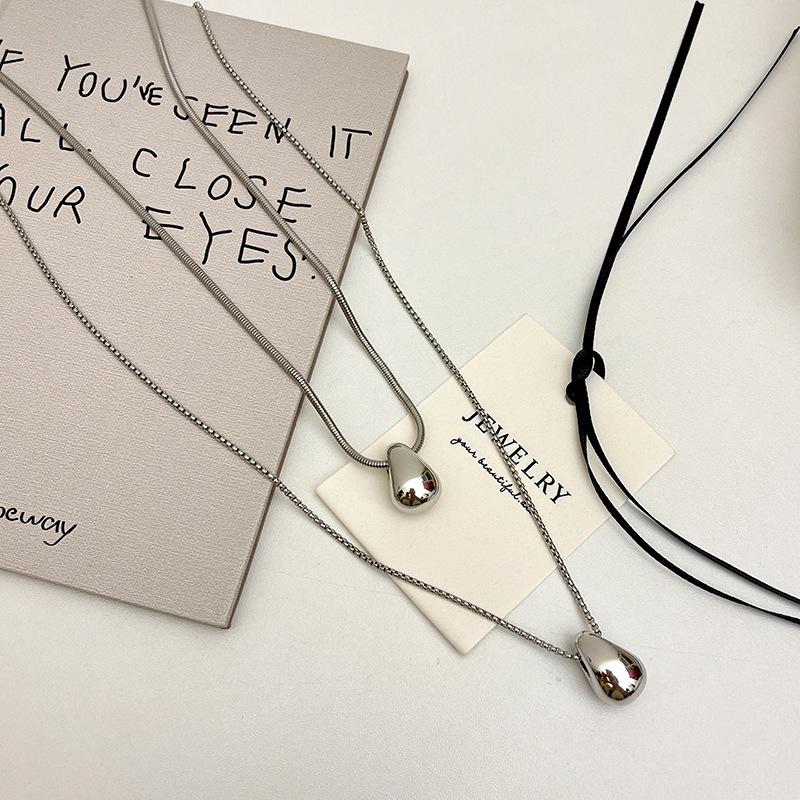 IF YOU'VE SEEN IT
ALL CLOSE
YOUR EYES.
JEWELRY
your beautiful